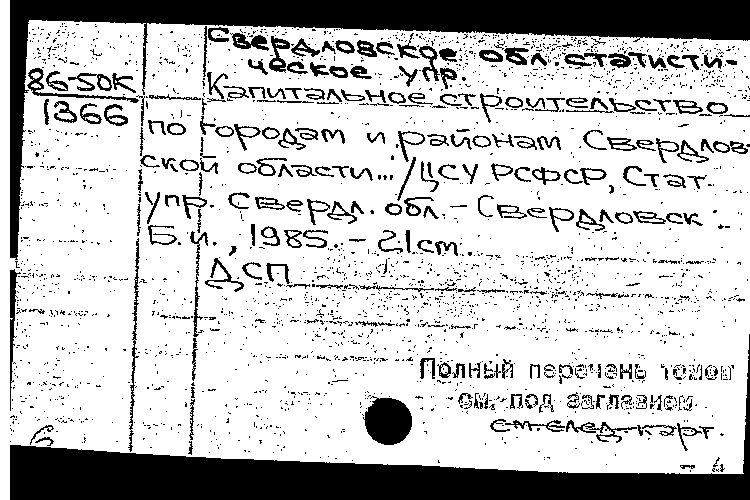 Свердловское обл. статисти-
ческое упр.
86-50К
1366
Капитальное строительство
по городам и районам Свердлов-
ской области... / ЦСУ РСФСР, Стат.
упр. Свердл. обл. - Свердловск :
Б.и., 1985. - 21 см.
ДСП
Полный перечень томов
см. под заглавием
см. след. карт.